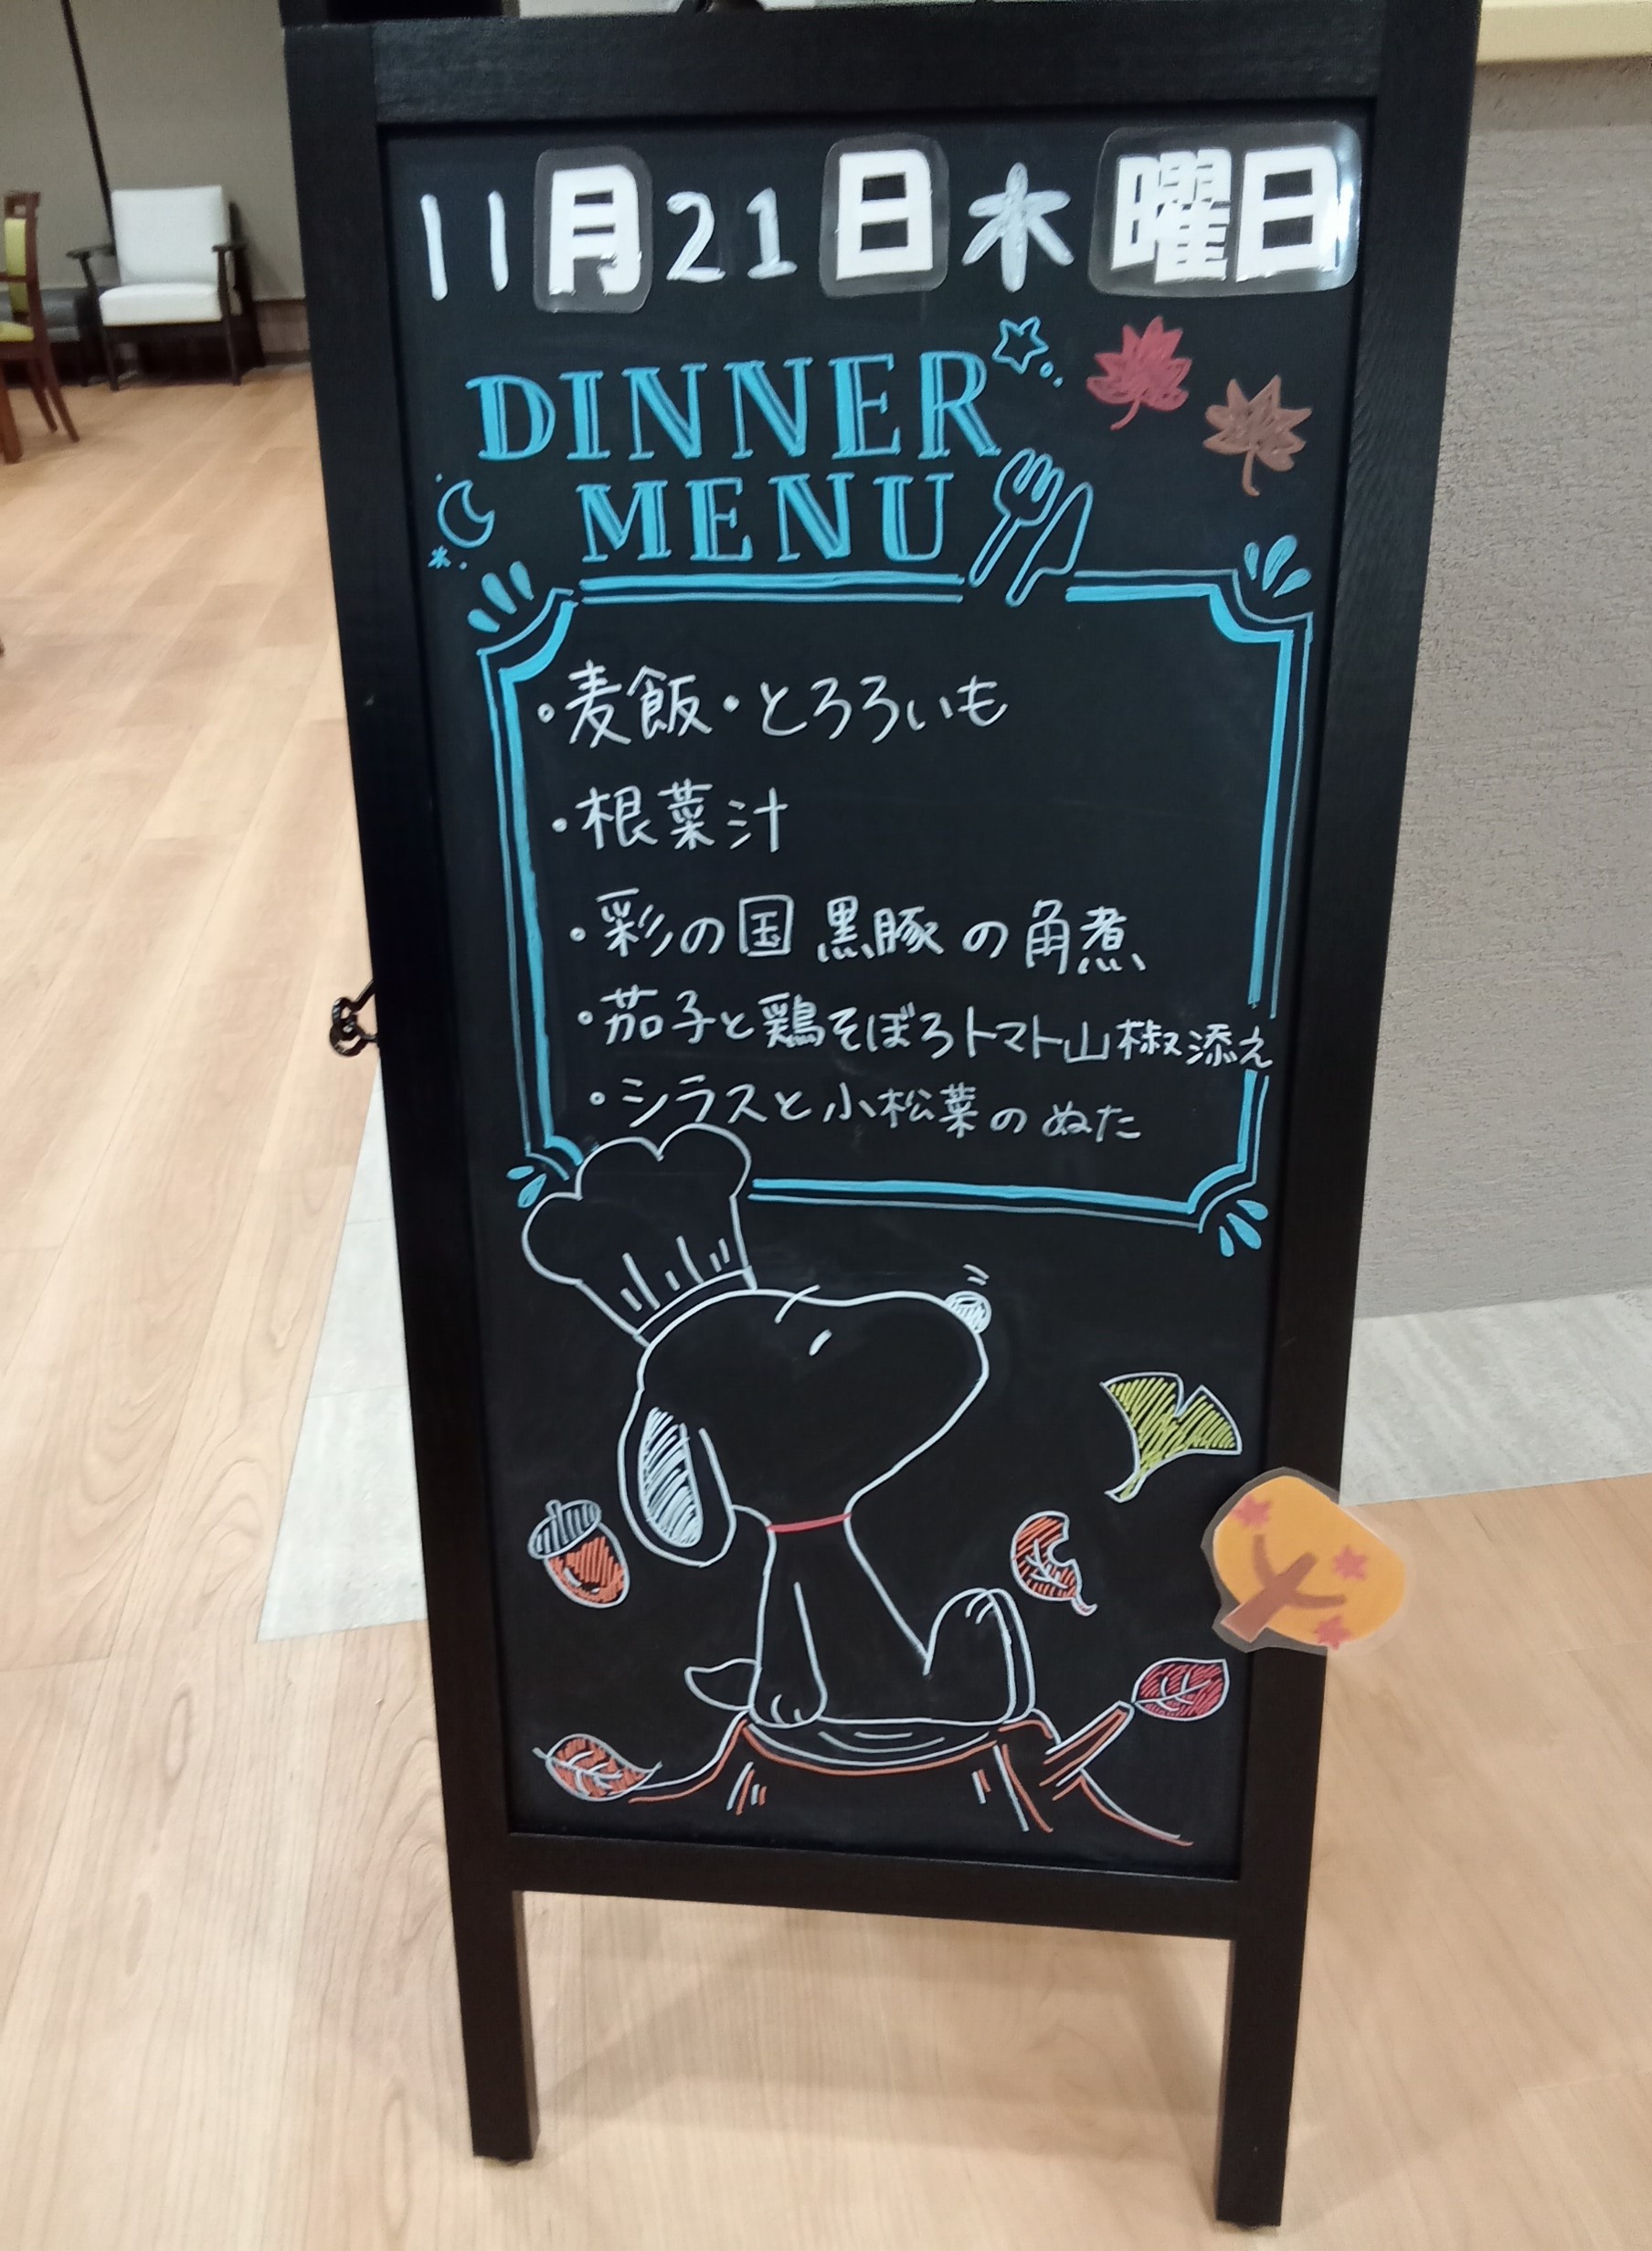 11月21日木曜日
DINNER
MENU
・麦飯・とろろいも
・根菜汁
・彩の国 黒豚の角煮
・茄子と鶏そぼろトマト山椒添え
・シラスと小松菜のぬた